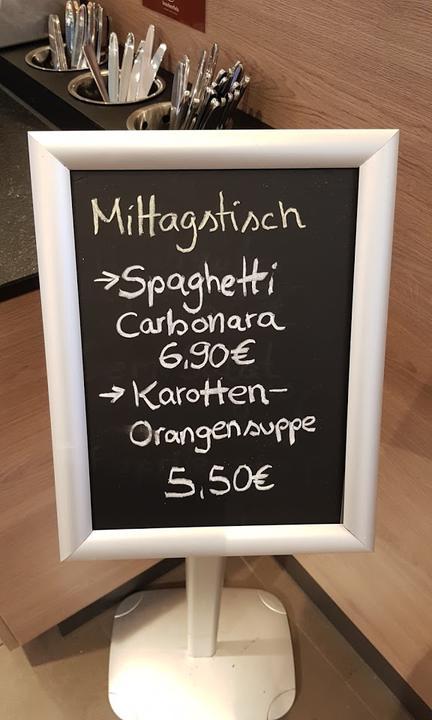 Mittagstisch
→Spaghetti
Carbonara
6,90€
→Karotten-
Orangensuppe
5,50€